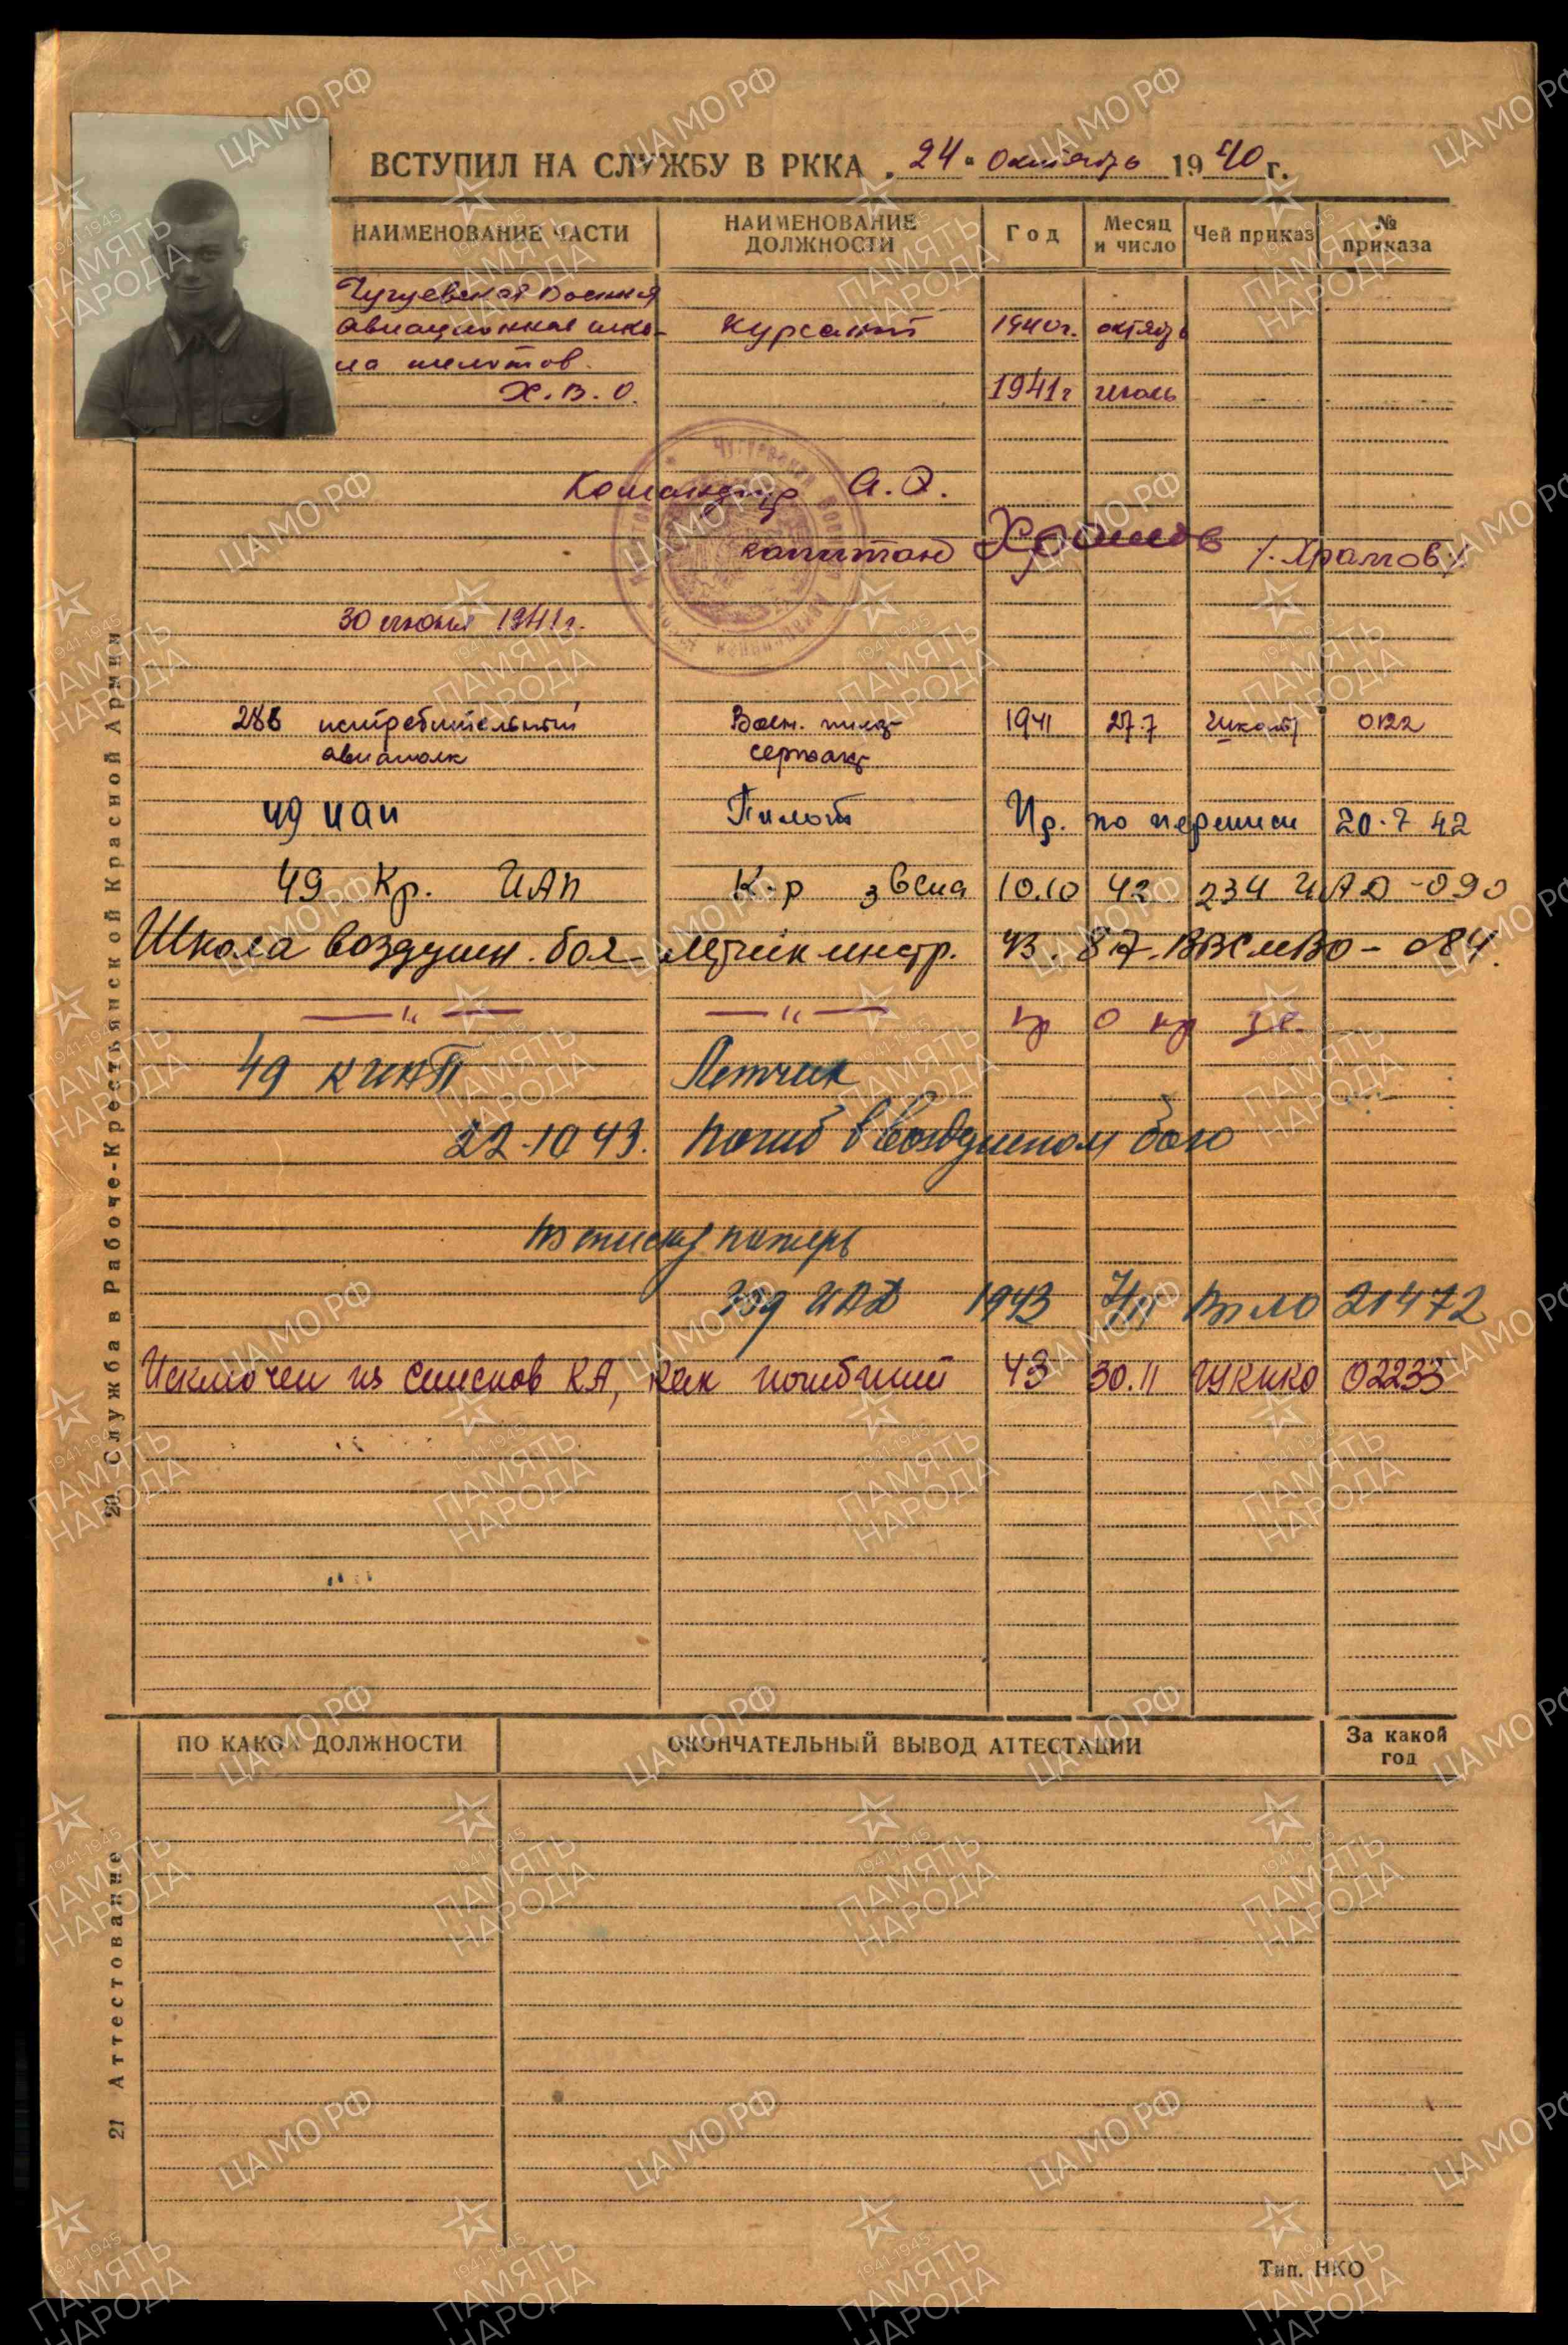 ВСТУПИЛ НА СЛУЖБУ В РККА „24“ октября 1940 г.
НАИМЕНОВАНИЕ ЧАСТИ НАИМЕНОВАНИЕ ДОЛЖНОСТИ Год Месяц и число Чей приказ № приказа
Чугуевская военная
авиационная шко- курсант 1940г. октябрь
ла пилотов.
Х.В.О. 1941г июль
Командир А.Э.
капитан Храмов /Храмов/
30 июня 1941г.
286 истребительный Воен. пилот 1941 27.7 школы 0122
авиаполк сержант
49 иап Пилот Пр. по переписи 20.7 42
49 Кр. ИАП К-р звена 10.10 42 234 ИАД-090
Школа воздушн. боя летчик инстр. 43. 8/7. ВВС МВО - 084.
—"— —"—
49 КИАП Летчик
22.10 43. Погиб в воздушном бою
По списку потерь
309 ИАД 1943 7/11 Вх по 21472
Исключен из списков КА, как погибший 43 30.11 ГУК НКО 02233
20 Служба в Рабоче-Крестьянской Красной Армии
ПО КАКОЙ ДОЛЖНОСТИ ОКОНЧАТЕЛЬНЫЙ ВЫВОД АТТЕСТАЦИИ За какой год
21 Аттестование
Тип. НКО
ЦАМО РФ
1941-1945
ПАМЯТЬ
НАРОДА